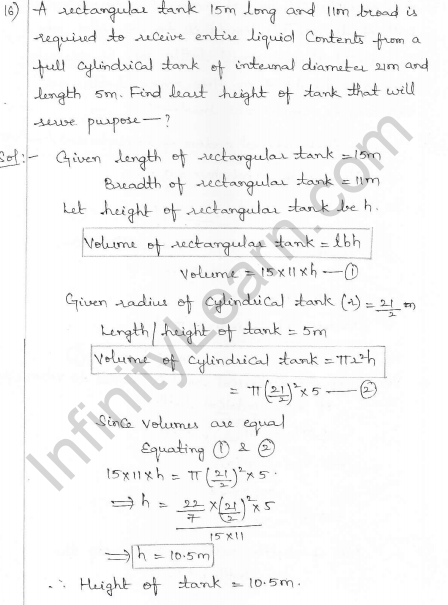 16) A rectangular tank 15m long and 11m broad is
required to receive entire liquid Contents from a
full cylindrical tank of internal diameter 21m and
length 5m. Find least height of tank that will
serve purpose—?
Sol:- Given length of rectangular tank = 15m
Breadth of rectangular tank = 11m
Let height of rectangular tank be h.
Volume of rectangular tank = lbh
Volume = 15×11×h — ①
Given radius of cylindrical tank (r) = 21/2 m
Length/height of tank = 5m
Volume of cylindrical tank = πr²h
= π(21/2)²×5 — ②
Since volumes are equal
Equating ① & ②
15×11×h = π(21/2)²×5.
⟹ h = 22/7 ×(21/2)²×5
15×11
⟹ h = 10.5m
∴ Height of tank = 10.5m.
InfinityLearn.com